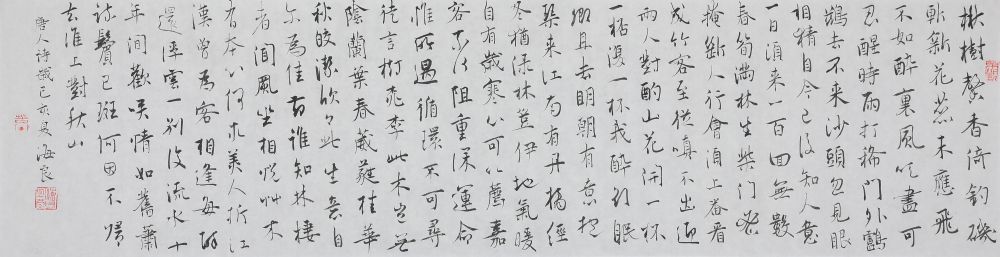 楸樹馨香倚釣磯
斬新花蕊未應飛
不如醉裏風吹盡可
忍醒時雨打稀門外鸕
鷀去不来沙頭忽見眼
相猜自今已後知人意
一日須来一百回無數
春筍滿林生柴門密
掩斷人行會須上番看
成竹客至從嗔不出迎
兩人對酌山花開一杯
一杯復一杯我醉欲眠
卿且去明朝有意抱
琴来江南有丹橘經
冬猶渌林豈伊地氣暖
自有歲寒心可以薦嘉
客奈何阻重深運命
惟所遇循環不可尋
徒言樹桃李此木豈無
陰蘭葉春葳蕤桂華
秋皎潔欣欣此生意自
尔為佳節誰知林棲
者聞風坐相悦草木
有本心何求美人折江
漢曾為客相逢每醉
還浮雲一别後流水十
年間歡笑情如舊蕭
疎鬢已斑何因不歸
去淮上對秋山
唐人詩歲己亥吴海良